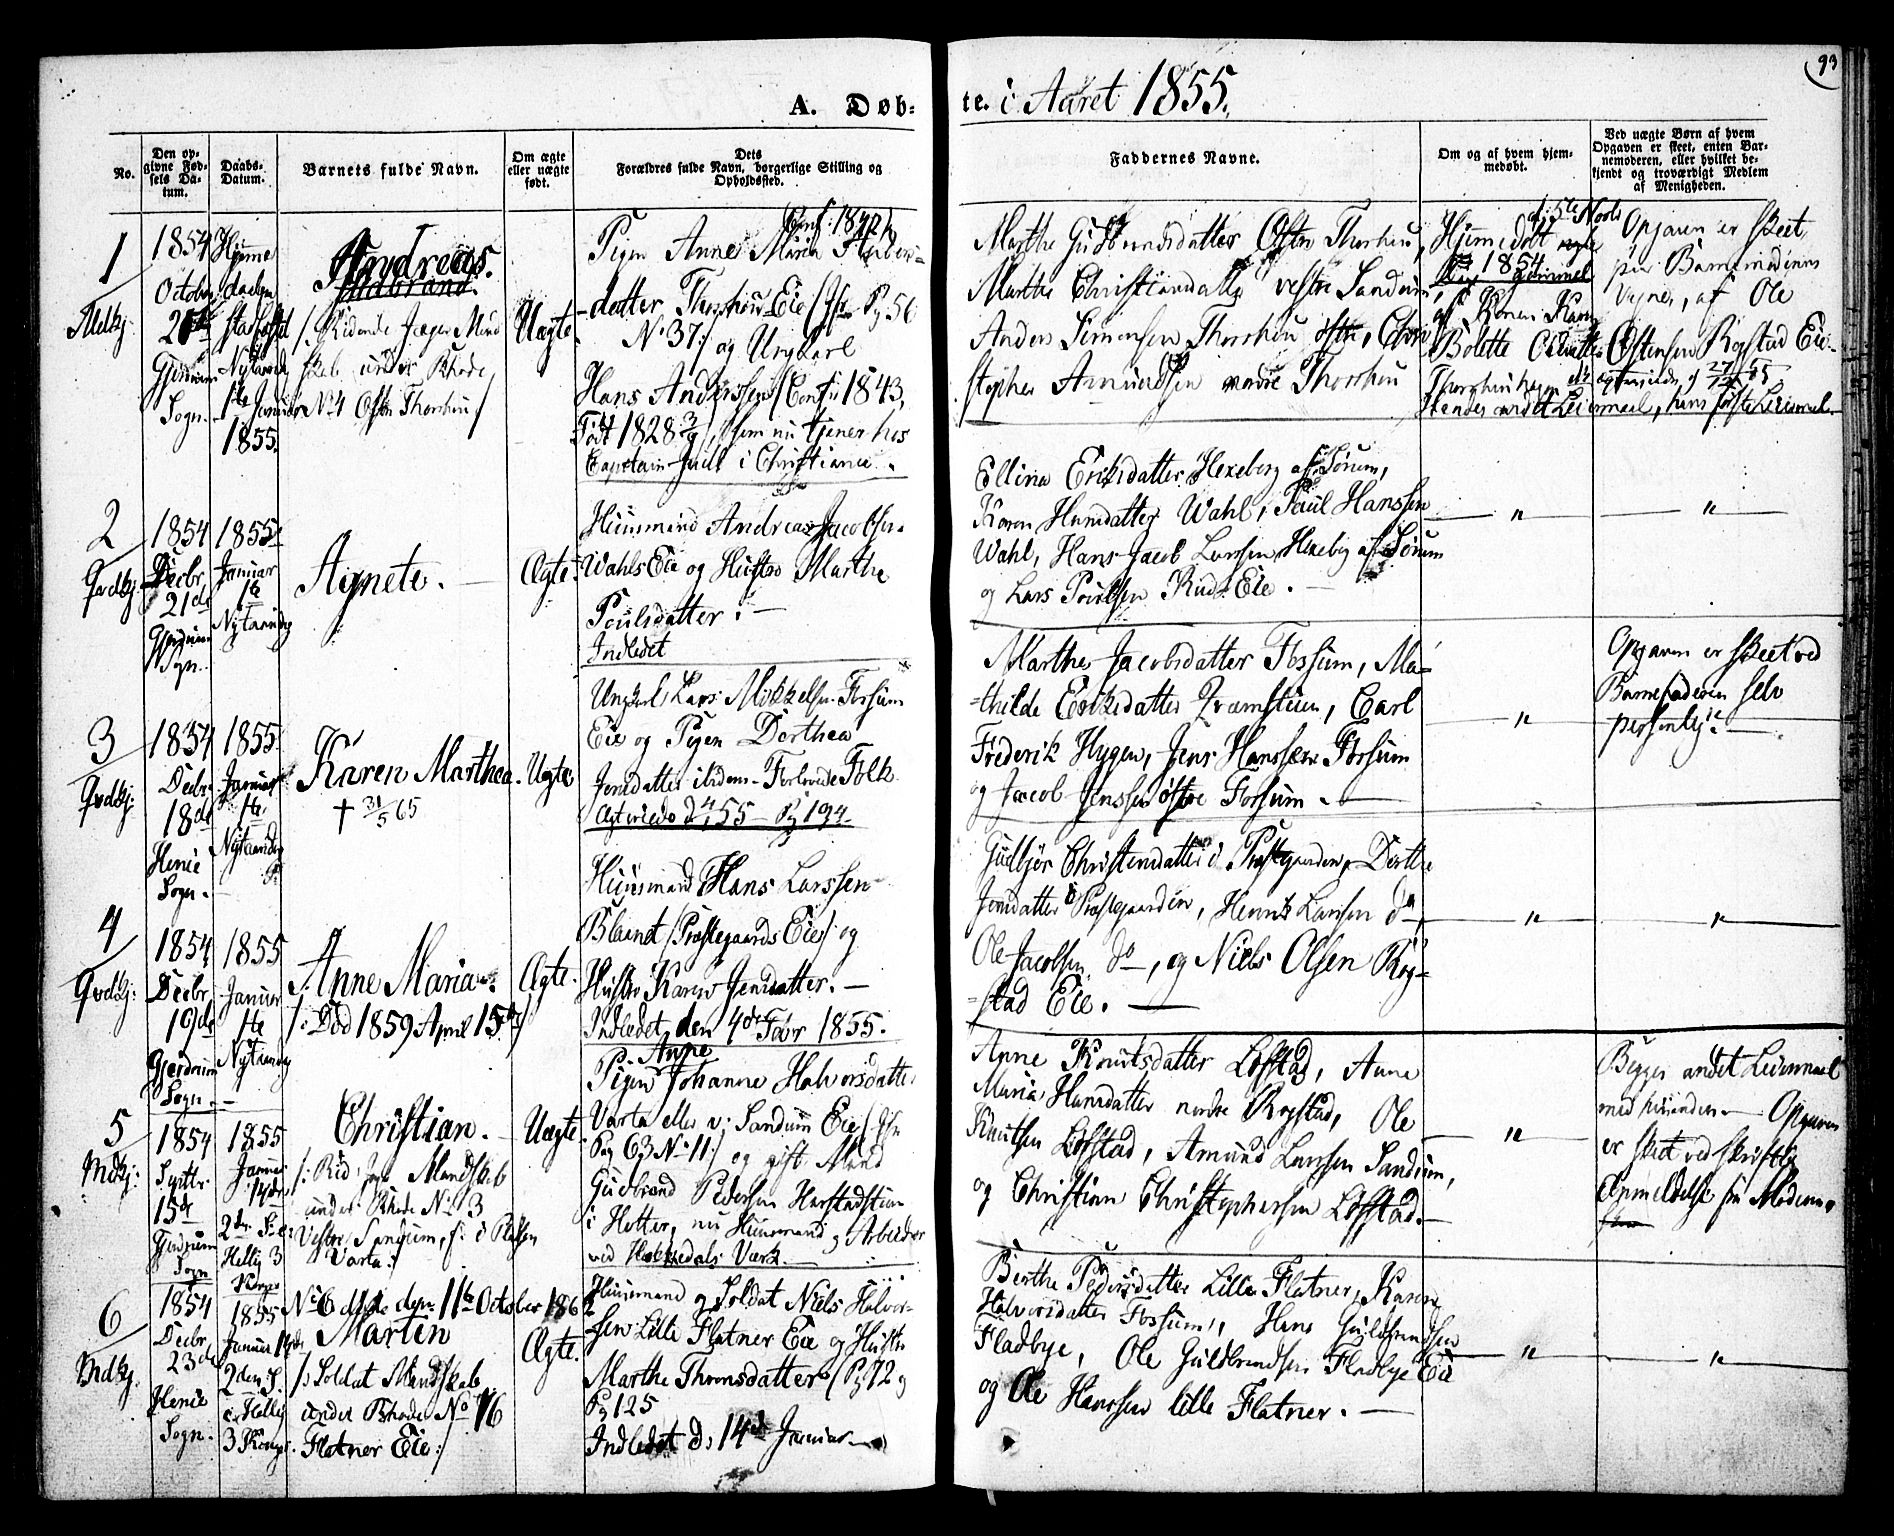 93
A. Døb-
te. i Aaret 1855.
No.
Den op-
givne Fød-
sels Da-
tum.
Daabs-
Datum.
Barnets fulde Navn.
Om ægte
eller uægte
født.
Dets
Forældres fulde Navn, borgerlige Stilling og
Opholdssted.
Faddernes Navne.
Om og af hvem hjem-
medøbt.
Ved uægte Børn af hvem
Opgaven er skeet, enten Bar-
nemoderen, eller hvilket be-
kjendt og troværdigt Medlem
af Menigheden.
1
1854
October
Sogn.
1855.
Andreas.
under Rhode
No 4 Østre Thorshou
Uægte
Pigen Anne Maria
datter Thorshou Eie
No 37 og Ungkarl
Hans Anderssen Conf: 1843,
Født 1828, som nu tjener hos
Capitain Juell i Christiania.
Marthe Østre Thorshou,
Marthe Christiansdatter vestre Sandum,
Anders Simensen Thorshou østre, Chri-
stopher Amundsen nordre Thorshou
Hjemmedøbt
1854
Bolette
Opgaven er skeet
paa Barnemoderens
Vegne, af Ole
Østensen Rogstad Eie.
2
Qvdkj:
1854
Decbr
21de
Sogn.
1855
Januar
1te
Nytaarsdag
Agnete.
Ægte
Huusmand Andreas Jacobsen
Wahls Eie og Hustro Marthe
Poulsdatter.
Indledet
Ellina Eriksdatter Hexeberg af Sørum,
Karen Hansdatter Wahl, Paul Hanssen
Wahl, Hans Jacob Larssen Hexeberg af Sørum
og Lars Poulsen Rud Eie.
"
"
3
Qvdkj:
1854
Decbr
18de
Henie
Sogn.
1855
Januar
1te
Nytaarsdag
Karen Marthea
† 31/5 65
Uægte
Ungkarl Lars Mikkelsen Fossum
Eie og Pigen Dorthea
Jensdatter ibidem. Forlovede Folk
Marthe Jacobsdatter Fossum, Ma-
thilde Eriksdatter Kramsteen, Carl
Frederik Hygen, Jens Hanssen Fossum
og Jacob Jenssen østre Fossum.
"
Opgaven er skeet ved
Barnefaderen selv
personlig.
4
Qvdkj:
1854
Decbr
19de
Gjerdrum
Sogn.
1855
Januar
1te
Nytaarsdag
Anne Maria.
/: Død 1859 April 15de :/
Ægte
Huusmand Hans Larssen
Præstegaards Eie og
Hustro Karen Jensdatter.
Indledet den 4de Febr 1855.
Christensdatter i Præstegaarden, Dorthe
Jensdatter Præstegaarden, Henrik Larssen do,
Ole Jacobsen do, og Niels Olsen Rog-
stad Eie.
"
"
5
Mdkj:
1854
Septbr
15de
Gjerdrum
Sogn
1855
Januar
14de
2den S. e:
Hellig 3
Konger
Christian.
/: Rid: Jæg. Mandskab
under Rhode No 3
Vestre Sandum, f: i Pladsen
Varta :/
Uægte
Anne
Pigen Johanne Halvorsdatter
Varta eller v: Sandum Eie
Pag 63 No 11 :/ og gift Mand
Gudbrand Pedersen Harstadstuen
i Hotter, nu Huusmand og Arbeider
ved Hakkedals Værk.
Anne Knutsdatter Løfstad, Anne
Maria Hansdatter nordre Rogstad, Ole
Knutsen Løfstad, Amund Larssen Sandum,
og Christian Christophersen Løfstad.
"
Begges andet Leiermaal
med hinanden. Opgaven
er skeet ved skriftlig
Anmeldelse fra Moderen.
6
Mdkj.
1854
Decbr
23de
Henie
Sogn.
1855
Januar 14de
2den S.
e: Hellig
3 Konger.
No 6 døde den 11te October 1862
Marten
/: Soldat Mandskab
under Rhode No 76
Flatner Eie :/
Ægte.
Huusmand og Soldat Niels Halvor-
sen Lille Flatner Eie og Hustro
Marthe Thomsdatter Pg 72 og
Pg 125
Indledet d: 14de Januar
Berthe Pedersdatter Lille Flatner, Karen
Halvorsdatter Fossum, Hans Guldbrandsen
Fladbye, Ole Guldbrandsen Fladbye Eie
og Ole Hanssen lille Flatner.
"
"